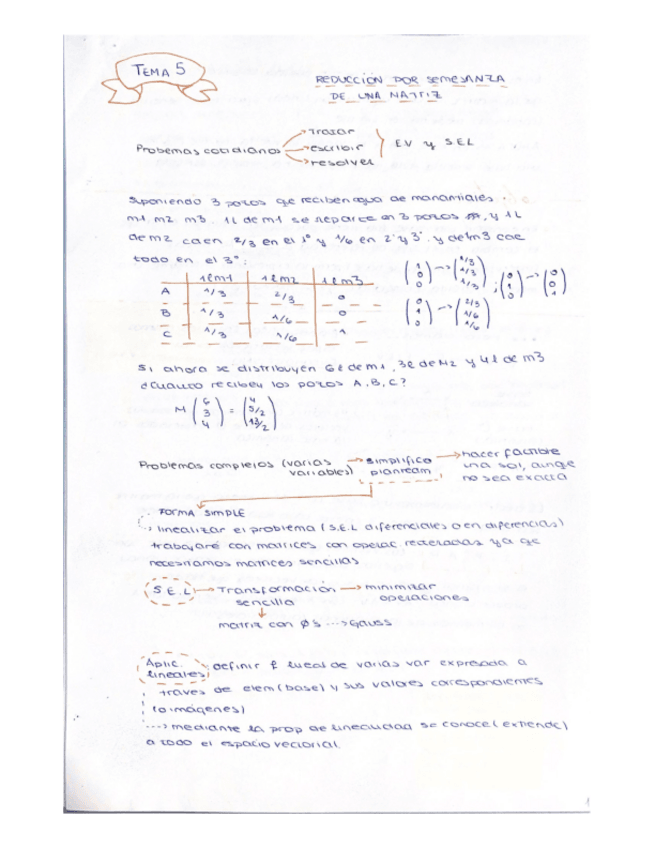 TEMA 5
REDUCCIÓN POR SEMEJANZA
DE UNA MATRIZ
Problemas cotidianos → trazar → escribir → resolver } EV y SEL
Suponiendo 3 pozos qe reciben agua de manantiales
m1, m2 m3. 1L de m1 se reparte en 3 pozos, y 1L
de m2 caen 2/3 en el 1º y 1/6 en 2º y 3º, y de 1m3 cae
todo en el 3º:
1 l m1 1 l m2 1 l m3
A 1/3 2/3 0
B 1/3 1/6 0
C 1/3 1/6 1
(1 0 0) → (1/3 1/3 1/3) ; (0 1 0) → (0 0 1)
(0 1 0) → (2/3 1/6 1/6)
Si ahora se distribuyen 6l de m1, 3l de M2 y 4l de m3
¿Cuanto reciben los pozos A, B, C?
M (6 3 4) = (4 5/2 13/2)
Problemas complejos (varias variables) → simplifico planteam → hacer factible
una sol, aunqe
no sea exacta
FORMA SIMPLE
→ linealizar el problema (S.E.L diferenciales o en diferencias)
trabajaré con matrices con operac reiteradas ya qe
necesitamos matrices sencillas
S.E.L → Transformación sencilla → minimizar operaciones
matriz con 0's ---> Gauss
Aplic. lineales → definir f lineal de varias var expresada a
traves de elem (base) y sus valores correspondientes
(o imágenes)
---> mediante la prop de linealidad se conoce (extiende)
a todo el espacio vectorial.